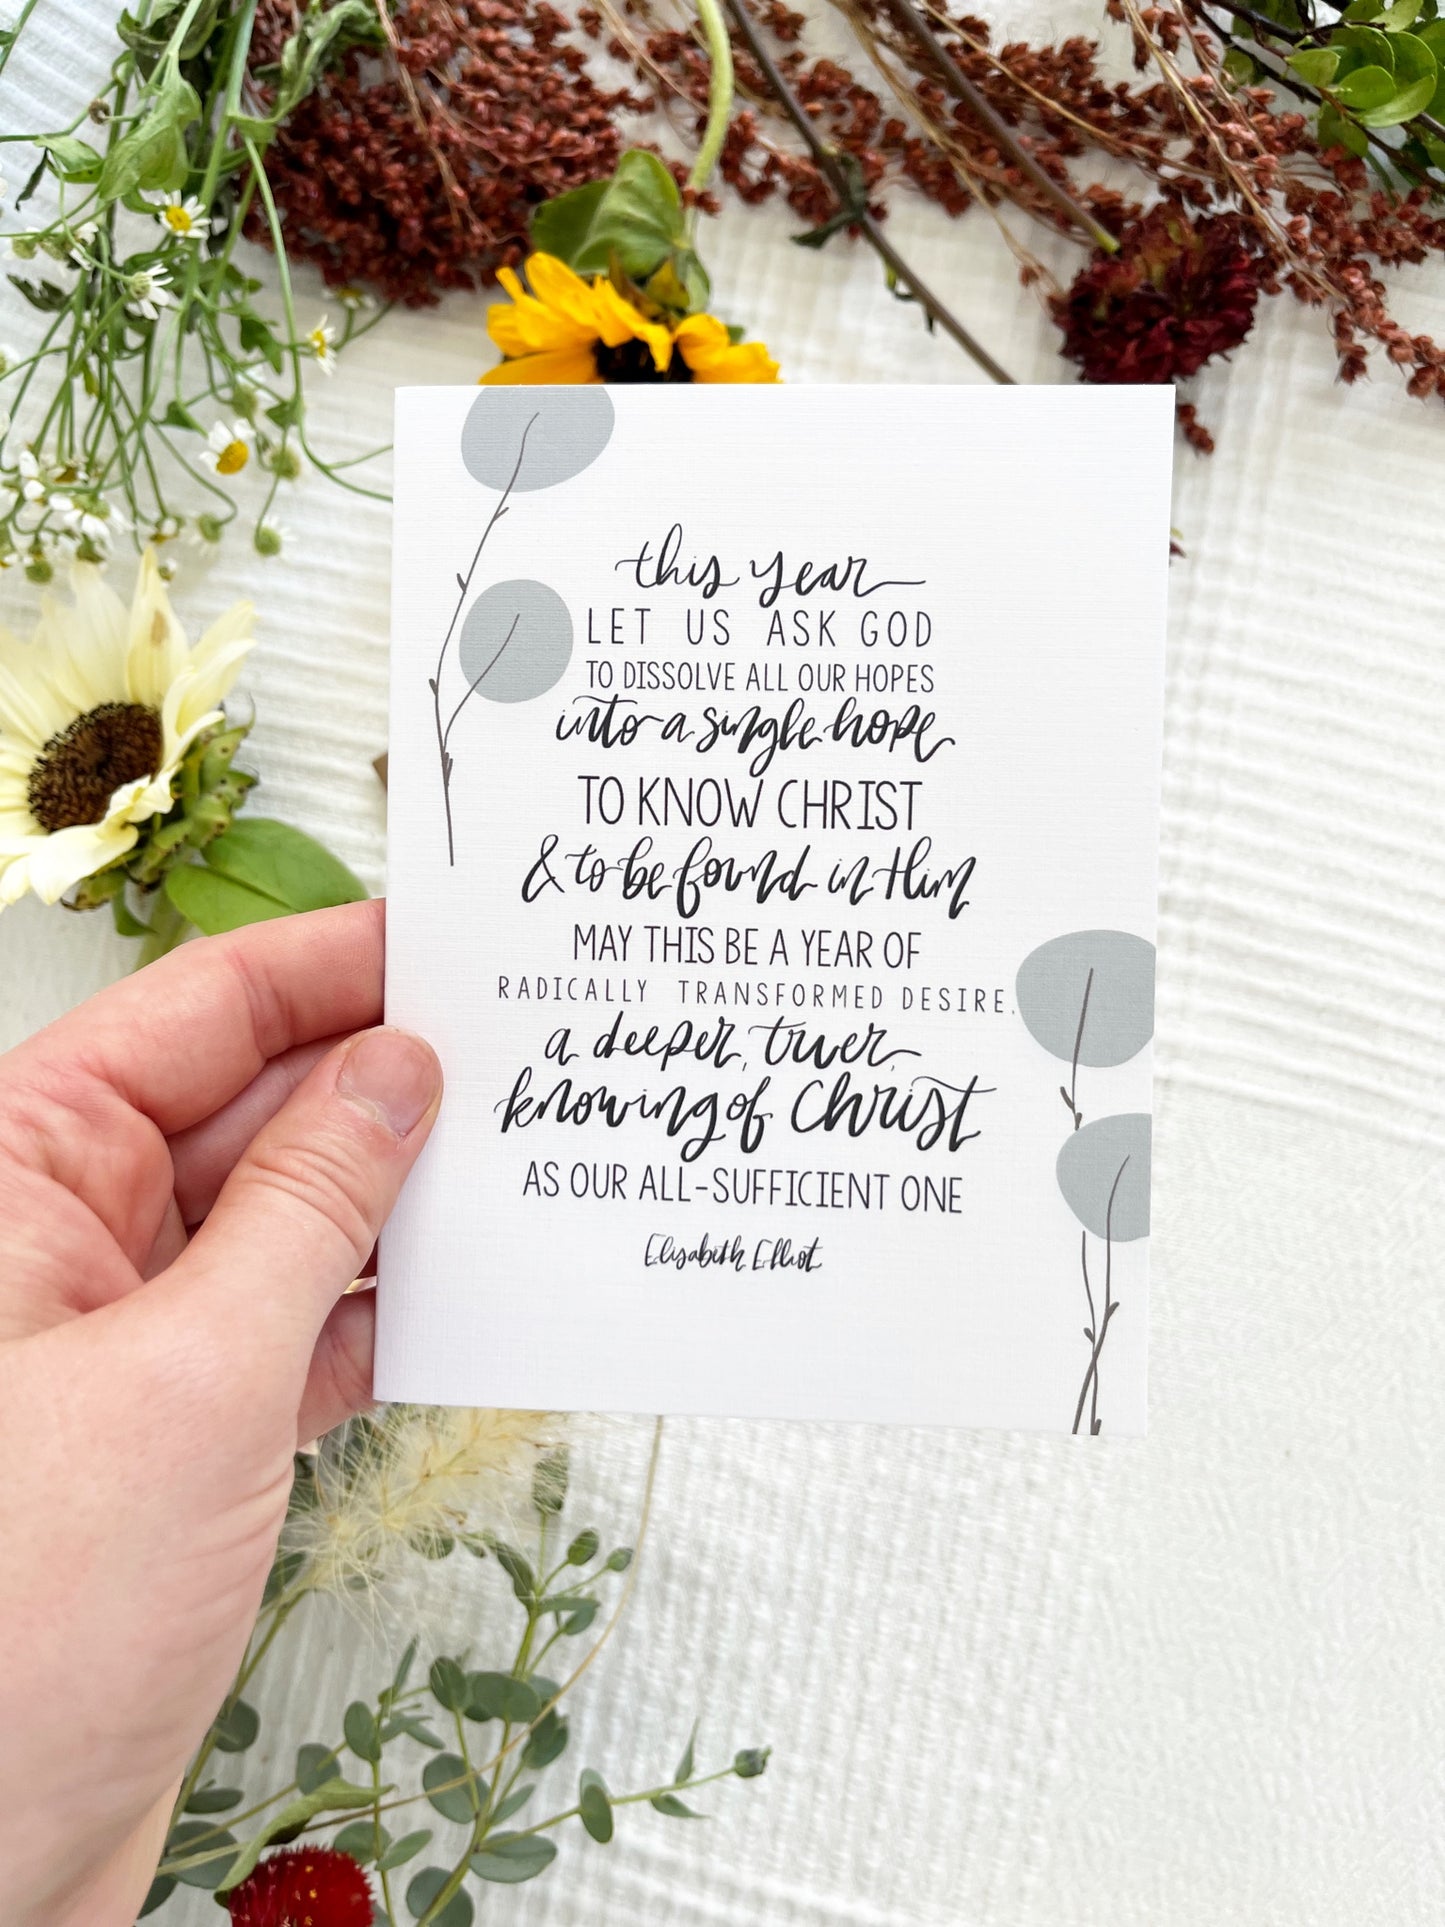 this year
LET US ASK GOD
TO DISSOLVE ALL OUR HOPES
into a single hope
TO KNOW CHRIST
& to be found in Him
MAY THIS BE A YEAR OF
RADICALLY TRANSFORMED DESIRE,
a deeper, truer,
knowing of Christ
AS OUR ALL-SUFFICIENT ONE
Elisabeth Elliot